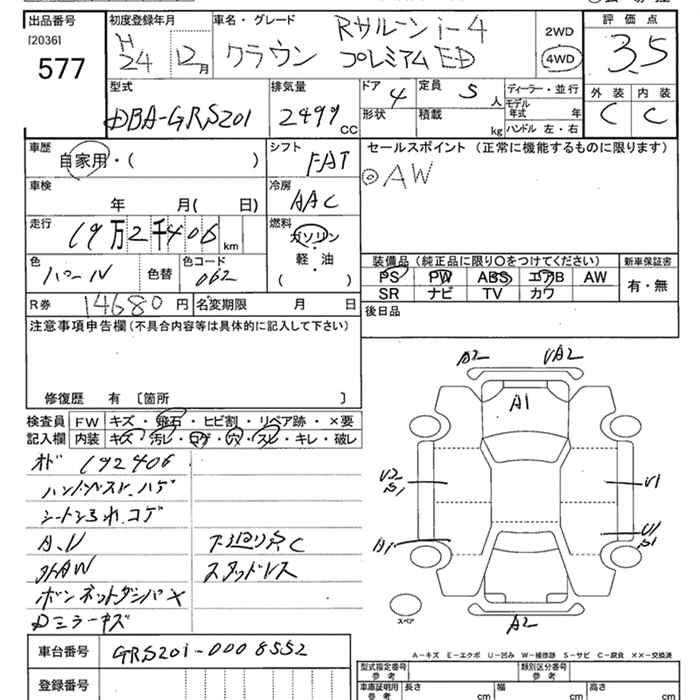 出品番号 初度登録年月 車名・グレード 評価点
[2036]
577
H24 12月
Rサルーン i-4
クラウン プレミアムED
2WD
4WD
3.5
外装 内装
C C
型式 排気量 ドア 定員 ディーラー・並行
DBA-GRS201 2499cc 4 5人
形状 積載 kg モデル年式 年
ハンドル 左・右
車歴 シフト セールスポイント (正常に機能するものに限ります)
自家用・( ) FAT ◎AW
車検 冷房
年 月( 日) AAC
走行 燃料
19万2千406km ガソリン
軽・油
( )
装備品 (純正品に限り○をつけてください) 新車保証書
PS PW ABS エアB AW 有・無
SR ナビ TV カワ
色 色替 色コード
パール 062
R券 14680円 名変期限 月 日
後日品
注意事項申告欄 (不具合内容等は具体的に記入して下さい)
修復歴 有 [箇所 ]
検査員 FW キズ・飛石・ヒビ割・リペア跡・×要
記入欄 内装 キズ・汚レ・コゲ・穴・スレ・キレ・破レ
オド 192406
ハンドル スレ、ハゲ
シートスレ、コゲ
A.U 下廻りサC
外AW スタッドレス
ボンネットダンパ×
Dミラーキズ
A2 UA2
A1
U2 U1
A1 U1
A2
スペア
A-キズ E-エクボ U-凹み W-補修跡 S-サビ C-腐食 XX-交換済
車台番号 GRS201-0008552
登録番号
型式指定番号 参考 類別区分番号 参考
車庫証明用 参考 長さ cm 幅 cm 高さ cm